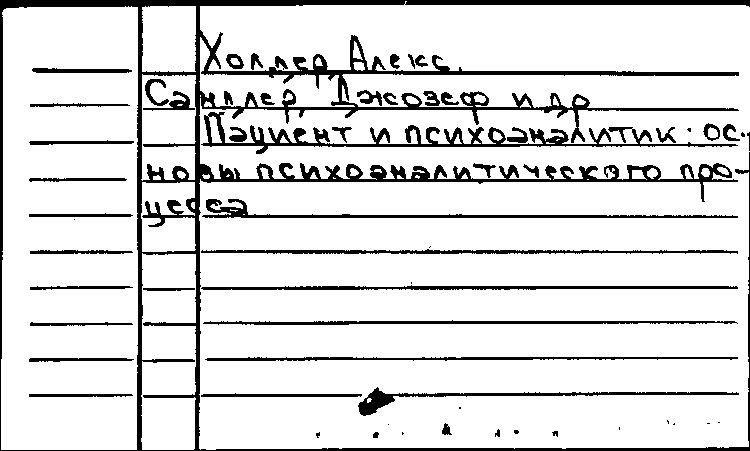 Холдер, Алекс.
Сандлер, Джозеф и др
Пациент и психоаналитик: ос-
новы психоаналитического про-
цесса